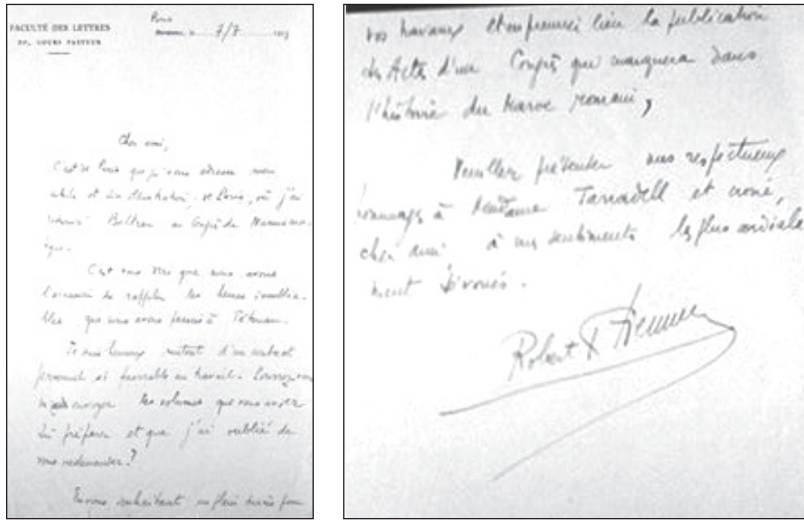 FACULTÉ DES LETTRES
20, COURS PASTEUR
Paris
le 7/7 195
Cher ami,
C'est de Paris que je vous adresse mon
article et les illustrations, de Paris, où j'ai
retrouvé Beltran au Congrès de Numismati-
que.
C'est vous dire que nous avons
l'occasion de rappeler les heures inoublia-
bles que nous avons passées à Tétouan.
Je me
personnel et favorable au travail. Pourrez-vous
envoyer les volumes que vous aviez
fait préparer et que j'ai oublié de
vous redemander?
En vous souhaitant un plein succès pour
vos travaux et en premier lieu la publication
des Actes d'un Congrès qui marquera dans
l'histoire du Maroc romain,
Veuillez présenter mes respectueux
hommages à Madame Tarradell et croire,
cher ami à mes sentiments les plus cordiale-
ment dévoués.
Robert Etienne